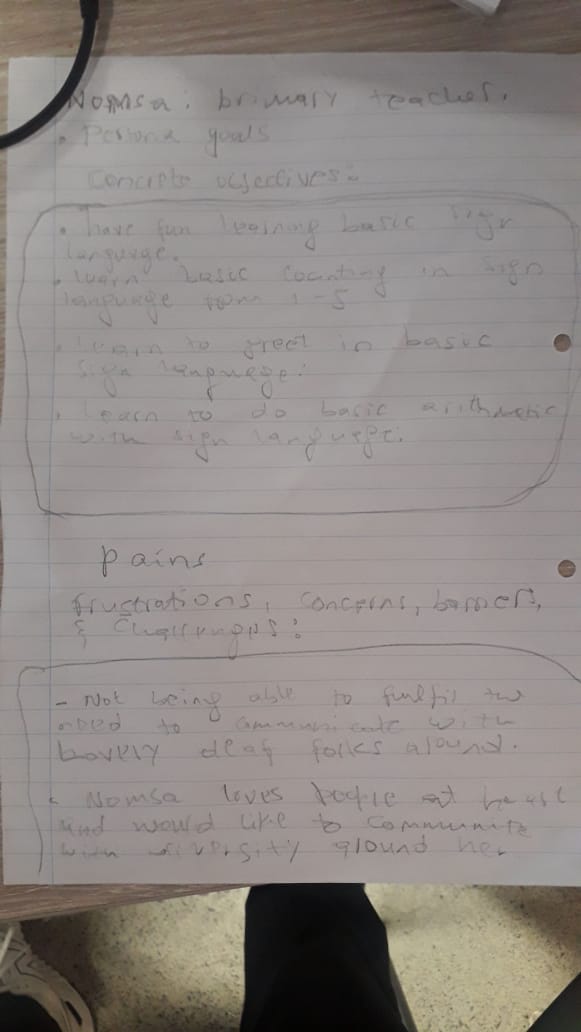 Nomsa: primary teacher.
• Persona goals
Concrete objectives:
• have fun learning basic sign
language.
• learn basic counting in sign
language from 1-5
• Learn to greet in basic
sign language.
• Learn to do basic arithmetic
with sign language.
Pains
frustrations, concerns, barriers,
& challenges:
- Not being able to fulfil the
need to communicate with
lovely deaf folks around.
- Nomsa loves people at heart
and would like to communite
with diversity around her